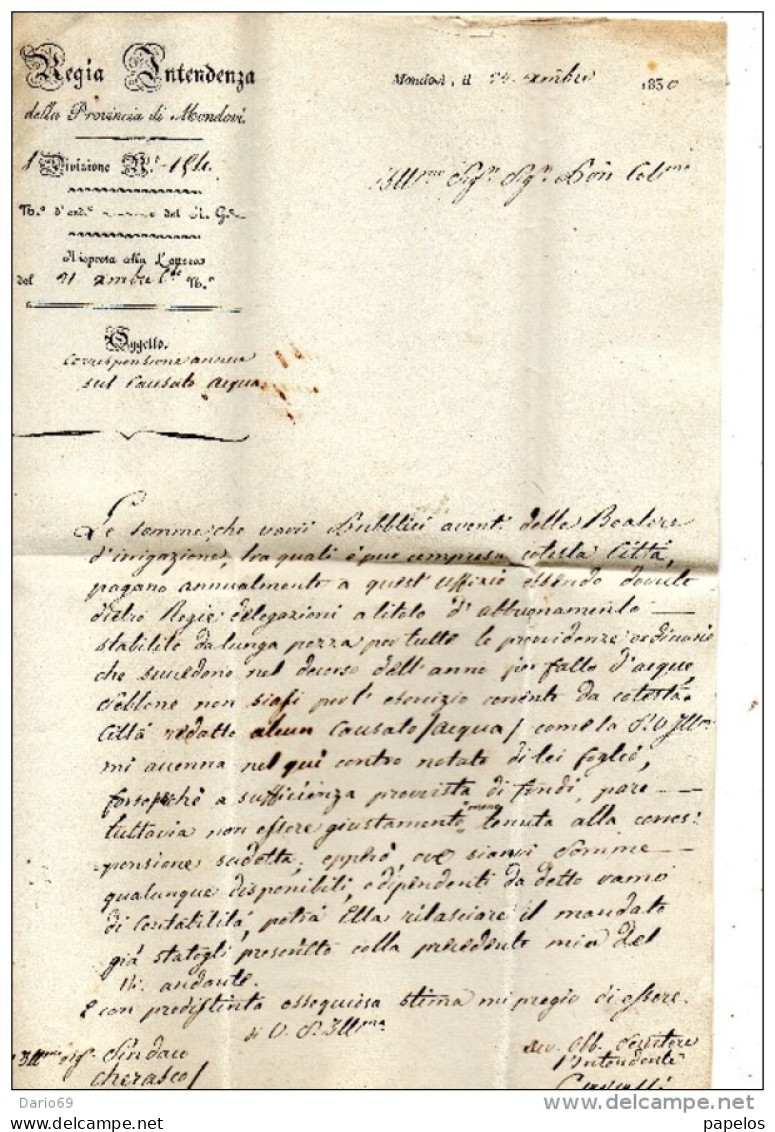 Regia Intendenza
della Provincia di Mondovì.
1 Divisione N.°
N.° d'ord.e del R. G.e
Risposta alla Lettera
del 21 xmbre N.°
Oggetto.
Corrisponsione annua
sul Causato acqua.
Mondovì, il xmbre 1830
Ill.mo Sig.r Sig.r Pron Col.mo
Le somme, che varii Pubblici aventi delle Bealere
d'irrigazione, tra quali è pur compresa cotesta Città,
pagano annualmente a quest'uffizio essendo dovute
dietro Regie delegazioni a titolo d'abbuonamento
stabilito da lunga pezza per tutte le providenze ordinarie
che succedono nel decorso dell'anno per fatto d'acque,
sebbene non siasi per l'esercizio corrente da cotesta
Città redatto alcun Causato /acqua/ come la S. V. Ill.ma
mi accenna nel qui contro notato di lei foglio,
forsechè a sufficienza provvista di fondi, pare
tuttavia non essere giustamente meno tenuta alla corres:
pensione sudetta; epperò, ove sianvi somme
qualunque disponibili, e dipendenti da detto ramo
di Contabilità, potrà Ella rilasciare il mandato
già statogli prescritto colla precedente mia del
14. andante.
E con predistinta ossequiosa stima mi pregio di essere
di V. S. Ill.ma
Ill.mo Sig.r Sindaco
Cherasco/
Dev. Obb. Servitore
l'Intendente
Dario69
© delcampe.net
papelos